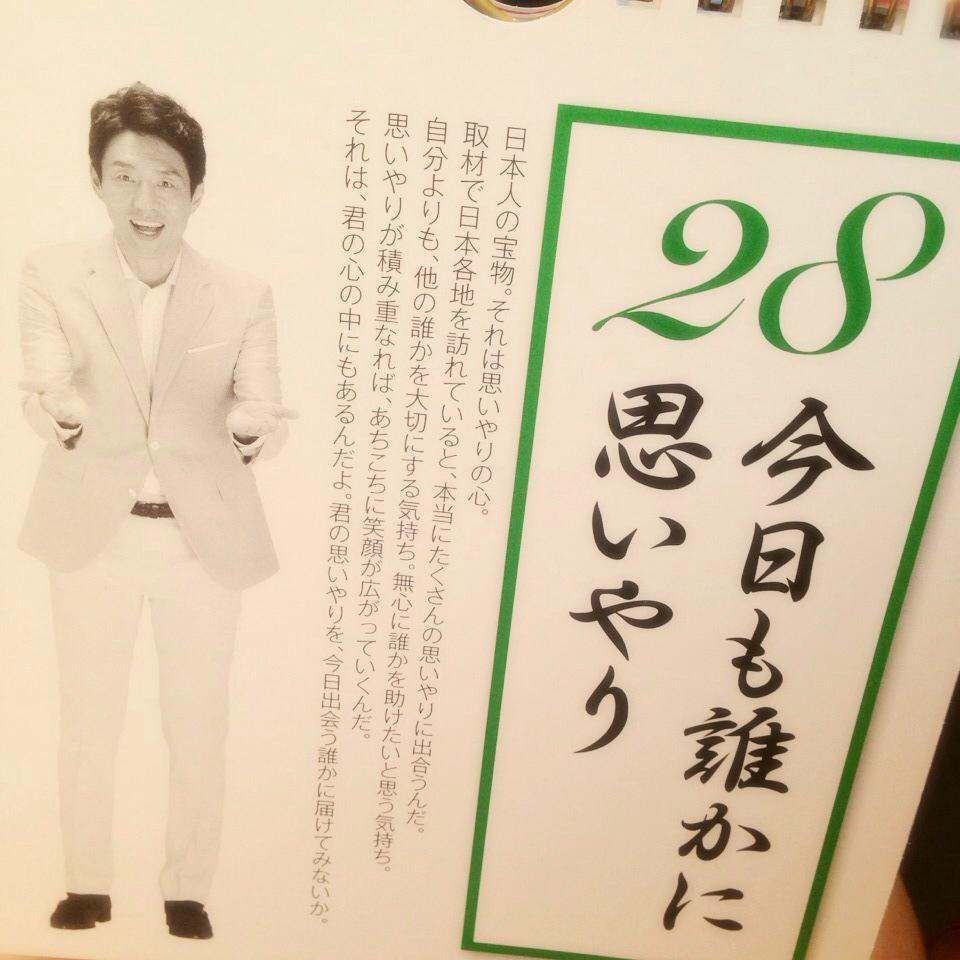 28
今日も誰かに
思いやり
日本人の宝物。それは思いやりの心。
取材で日本各地を訪れていると、本当にたくさんの思いやりに出合うんだ。
自分よりも、他の誰かを大切にする気持ち。無心に誰かを助けたいと思う気持ち。
思いやりが積み重なれば、あちこちに笑顔が広がっていくんだ。
それは、君の心の中にもあるんだよ。君の思いやりを、今日出会う誰かに届けてみないか。